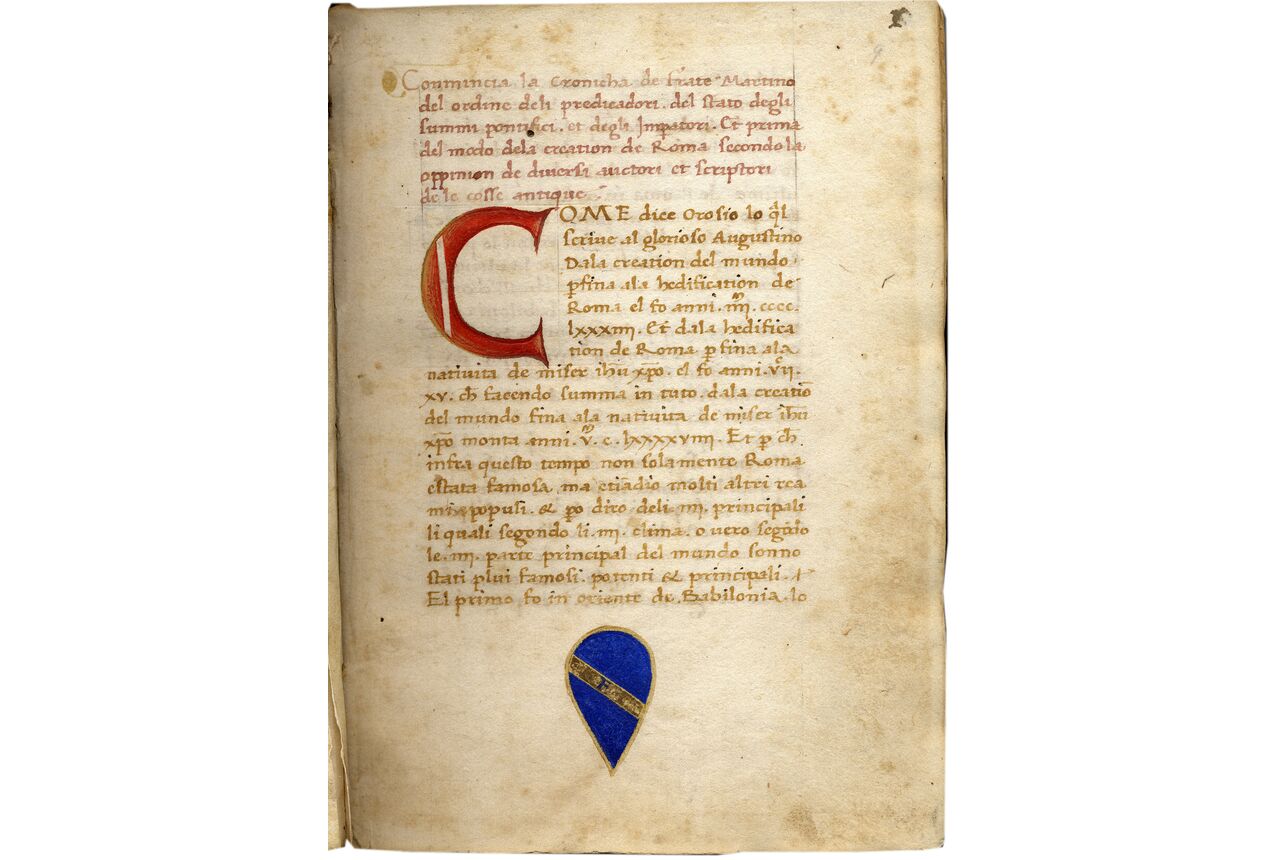 Conmincia la Cronicha de frate Martino
del ordine deli predicadori. del stato degli
summi pontifici. et degli Imperatori. Et prima
del modo dela creation de Roma secondo la
oppinion de diversi auctori et scriptori
de le cosse antique.
COME dice Orosio lo q̃l
scriue al glorioso Augustino
Dala creation del mundo
ꝑfina ala hedification de
Roma el fo anni. iiij.ᵐ cccc.
lxxxiiij. Et dala hedifica
tion de Roma ꝑ fina ala
natiuita de miser ihũ xp̃o. el fo anni. vij.ᶜ
xv. ch̃ facendo summa in tuto. dala creatiõ
del mundo fina ala natiuita de miser ihũ
xp̃o monta anni. v.ᵐ c. lxxxxviiij. Et ꝑ ch̃
infra questo tempo non solamente Roma
estata famosa, ma etiãdio molti altri rea
mi & populi. & ꝑo diro deli. iiij. principali
li quali segondo li. iiij. clima. o uero segõdo
le. iiij. parte principal del mundo sonno
stati plui famosi. potenti & principali.
El primo fo in oriente de Babilonia. lo